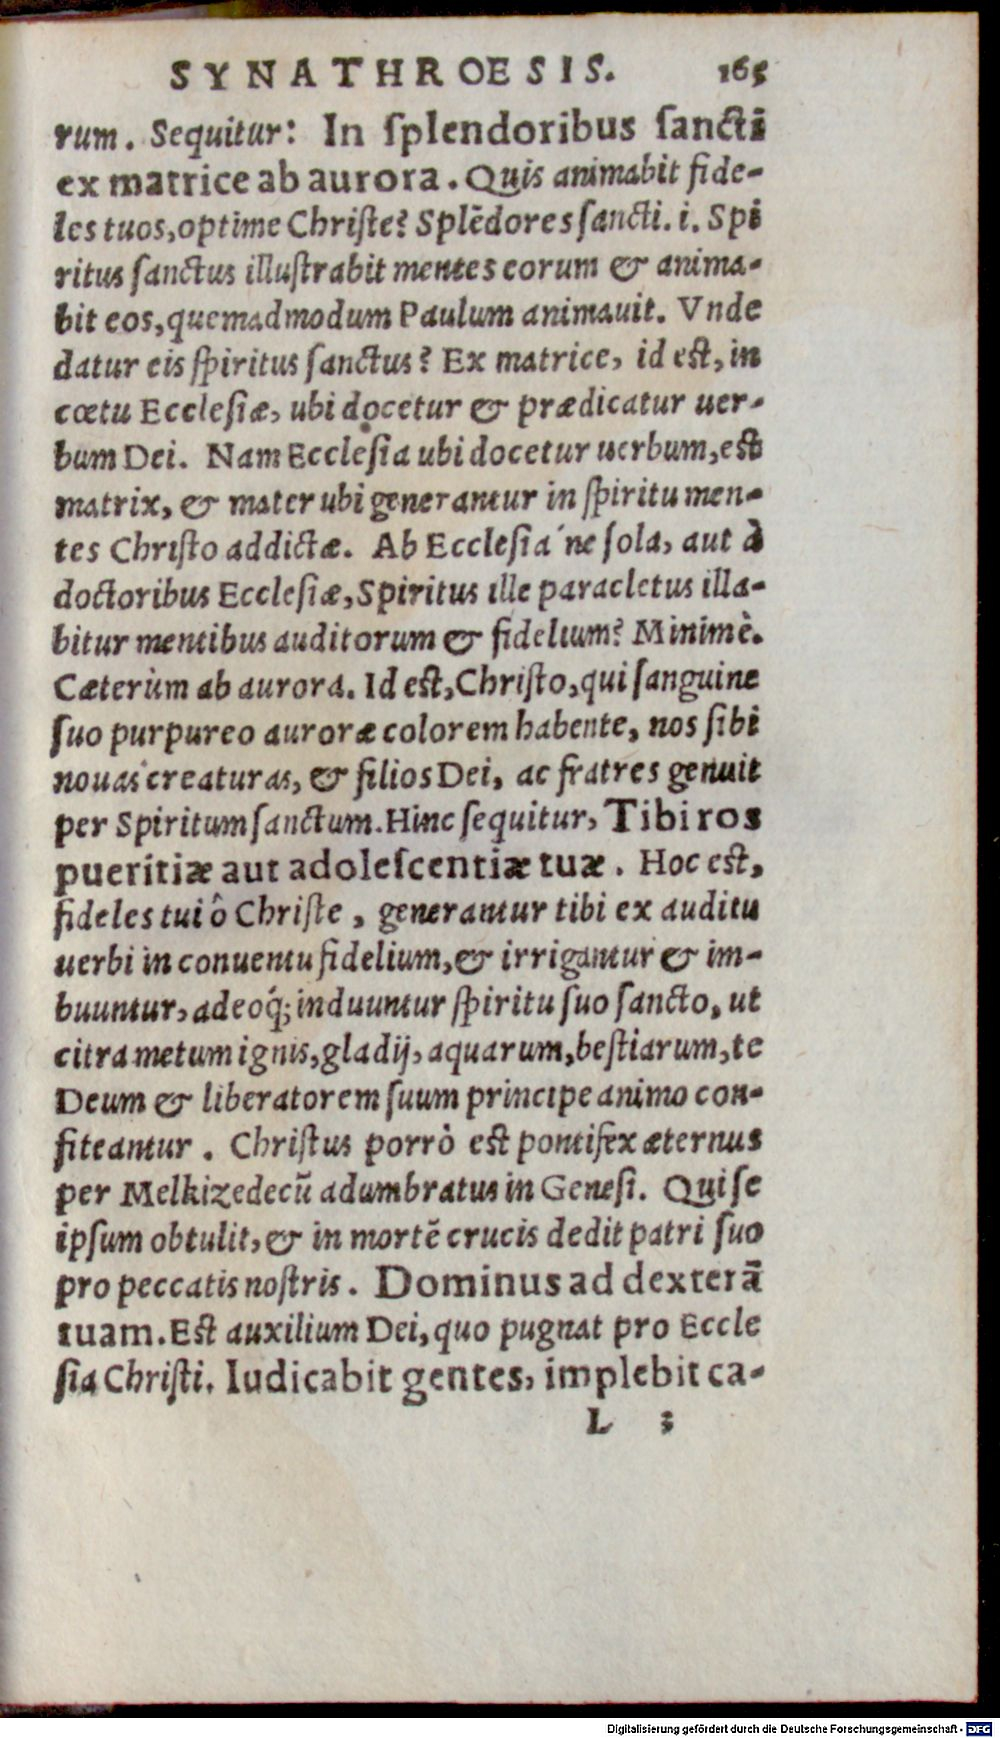 SYNATHROESIS. 165
rum. Sequitur: In ſplendoribus ſancti
ex matrice ab aurora. Quis animabit fide-
les tuos, optime Chriſte? Splēdores ſancti. i. Spi
ritus ſanctus illuſtrabit mentes eorum & anima-
bit eos, quemadmodum Paulum animauit. Vnde
datur eis ſpiritus ſanctus? Ex matrice, id eſt, in
cœtu Eccleſiæ, ubi docetur & prædicatur uer-
bum Dei. Nam Eccleſia ubi docetur uerbum, eſt
matrix, & mater ubi generantur in ſpiritu men-
tes Chriſto addictæ. Ab Eccleſia´ne ſola, aut à
doctoribus Eccleſiæ, Spiritus ille paracletus illa-
bitur mentibus auditorum & fidelium? Minimè.
Cæterùm ab aurora. Id eſt, Chriſto, qui ſanguine
ſuo purpureo auroræ colorem habente, nos ſibi
nouas creaturas, & filios Dei, ac fratres genuit
per Spiritum ſanctum. Hinc ſequitur, Tibi ros
pueritiæ aut adoleſcentiæ tuæ. Hoc eſt,
fideles tui ô Chriſte, generantur tibi ex auditu
uerbi in conuentu fidelium, & irrigantur & im-
buuntur, adeoq́; induuntur ſpiritu ſuo ſancto, ut
citra metum ignis, gladij, aquarum, beſtiarum, te
Deum & liberatorem ſuum principe animo con-
fiteantur. Chriſtus porrò eſt pontifex æternus
per Melkizedecū adumbratus in Geneſi. Qui ſe
ipſum obtulit, & in mortē crucis dedit patri ſuo
pro peccatis noſtris. Dominus ad dexterā
tuam. Eſt auxilium Dei, quo pugnat pro Eccle
ſia Chriſti. Iudicabit gentes, implebit ca-
L 3
Digitalisierung gefördert durch die Deutsche Forschungsgemeinschaft - DFG